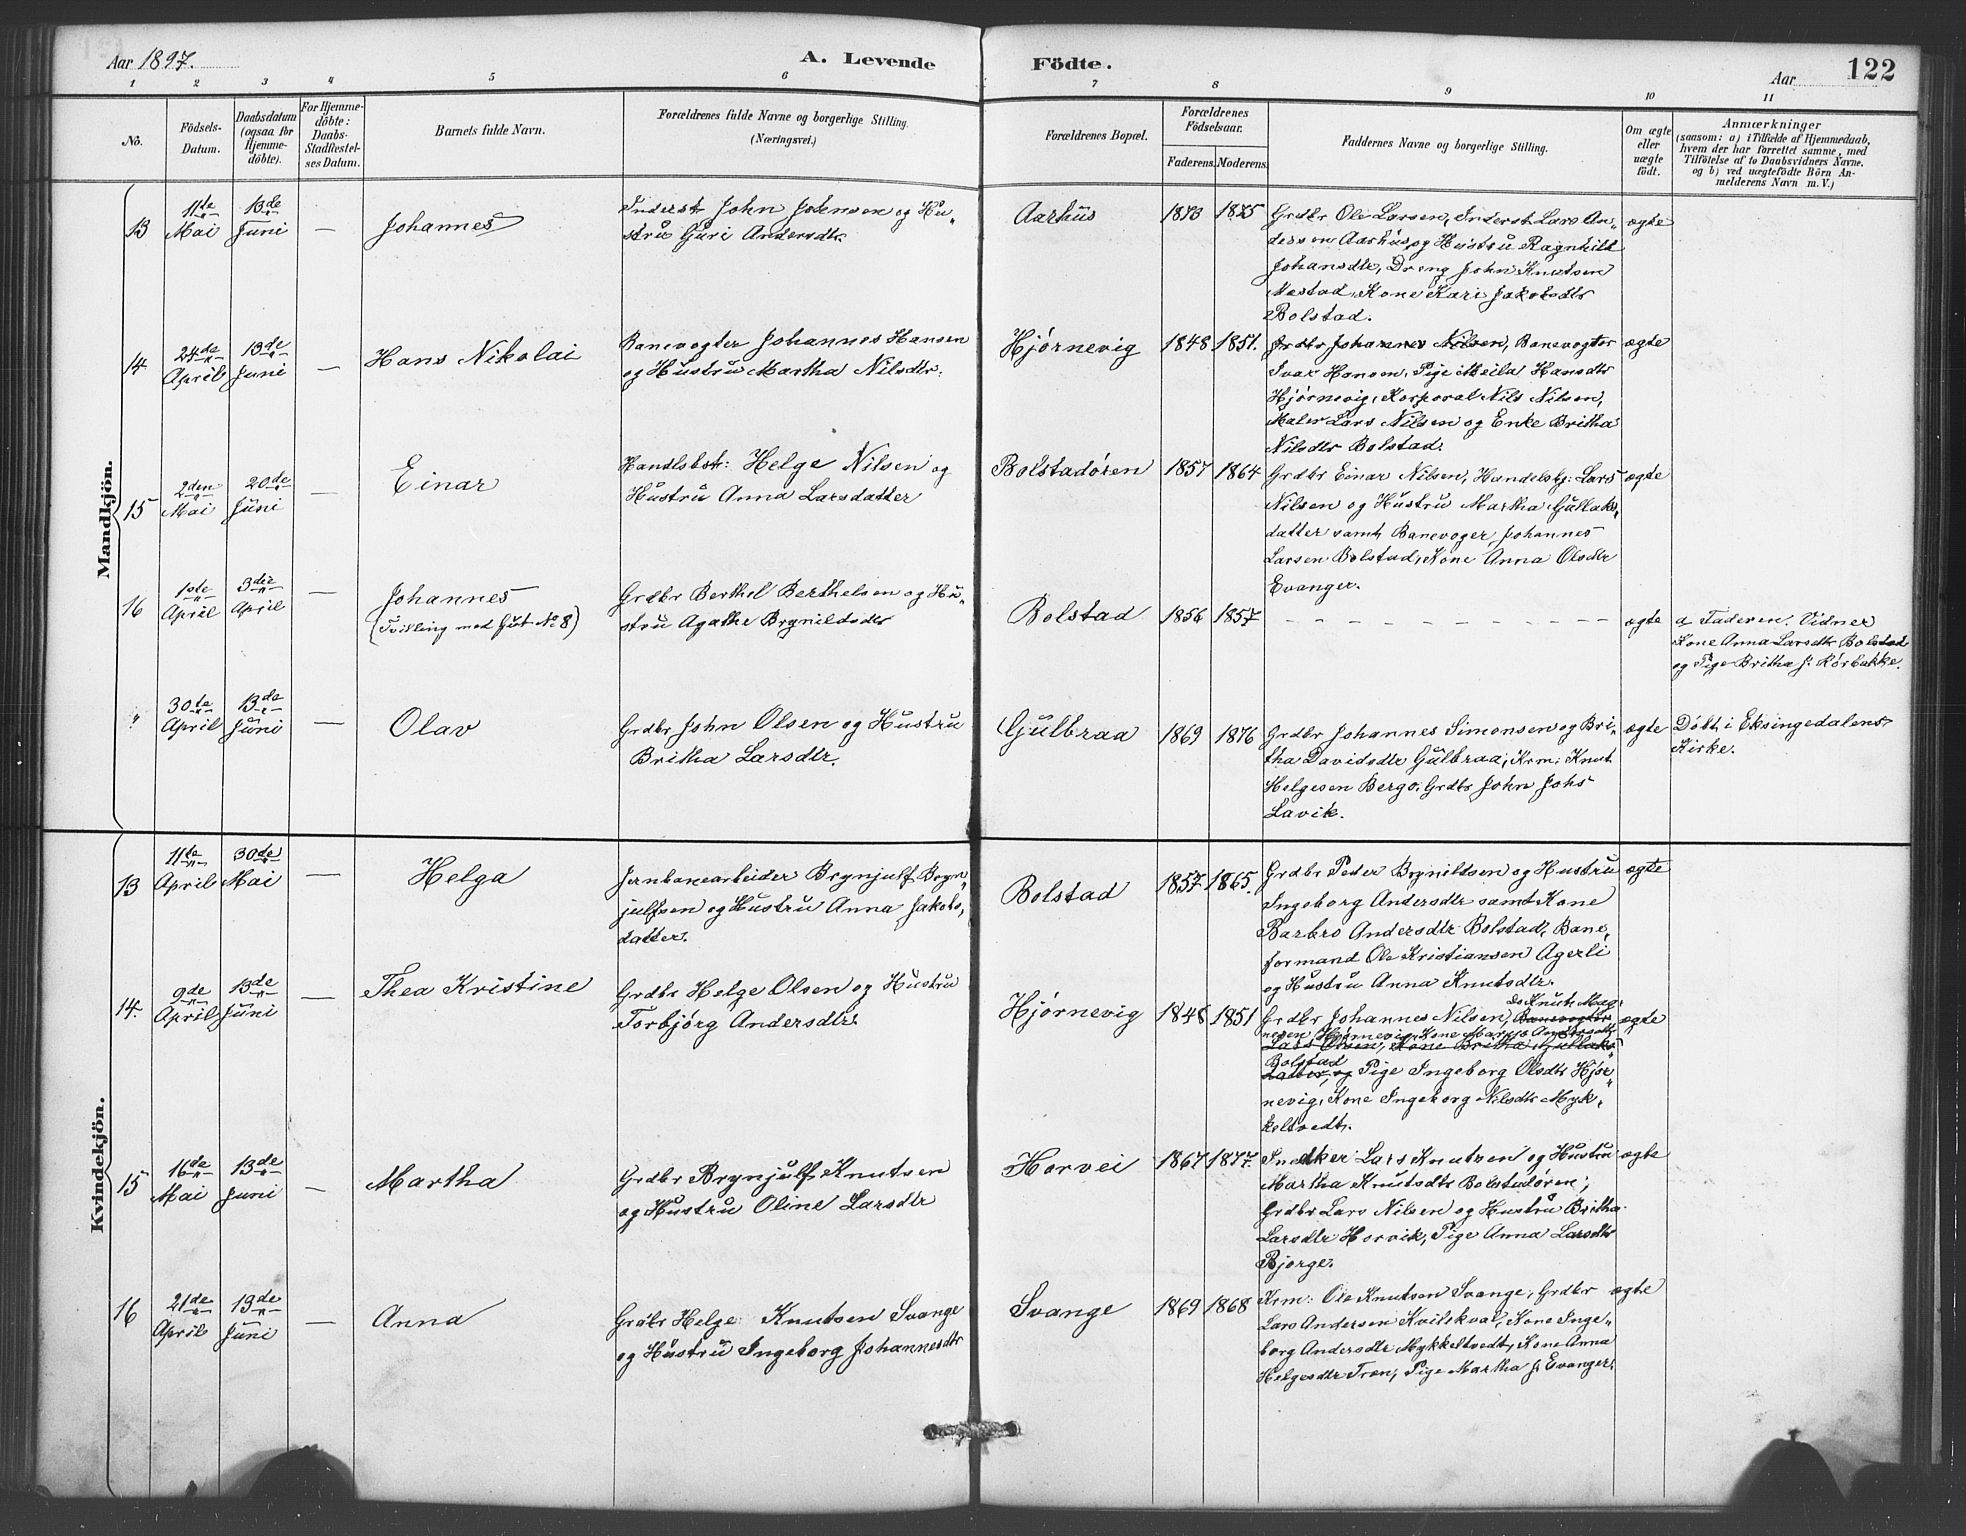 Aar 1897.
A. Levende
Födte.
Aar
122
1
2
3
4
5
6
7
8
9
10
11
No.
Födsels-
Datum.
Daabsdatum
(ogsaa for
Hjemme-
döbte).
For Hjemme-
döbte:
Daabs-
Stadfestel-
ses Datum.
Barnets fulde Navn.
Forældrenes fulde Navne og borgerlige Stilling.
(Næringsvei.)
Forældrenes Bopæl.
Forældrenes
Födselsaar.
Faderens.
Moderens.
Faddernes Navne og borgerlige Stilling.
Om ægte
eller
uægte
födt.
Anmærkninger
(saasom: a) i Tilfælde af Hjemmedaab,
hvem der har forrettet samme, med
Tilföielse af to Daabsvidners Navne,
og b) ved uægtefödte Börn An-
melderens Navn m. V.)
Mandkjön.
13
11te
Mai
13de
Juni
—
Johannes
Inderst John Johnsen og Hu-
stru Guri Andersdtr.
Aarhus
1873
1875
Grdbr Ole Larsen, Inderst Lars An-
dersen Aarhus og Hustru Ragnhild
Johansdtr, Dreng John Knutsen
Mestad, Kone Kari Jakobsdtr
Bolstad.
ægte
14
24de
April
13de
Juni
—
Hans Nikolai
Banevogter Johannes Hansen
og Hustru Martha Nilsdtr.
Hjørnevig
1848
1851.
Grdbr Johannes Nilsen, Banevogter
Ivar Hansen, Pige Meila Hansdtr
Hjørnevig, Korporal Nils Nilsen,
Maler Lars Nilsen og Enke Britha
Nilsdtr Bolstad.
ægte
15
2den
Mai
20de
Juni
—
Einar
Handlsbst: Helge Nilsen og
Hustru Anna Larsdatter
Bolstadøren
1857
1864
Grdbr Einar Nilsen, Handelsbj: Lars
Nilsen og Hustru Martha Gullaks-
datter samt Banevoger Johannes
Larsen Bolstad, Kone Anna Olsdtr
Evanger.
ægte
16
1ste
April
3die
April
—
Johannes
(Tvilling med Gut No 8)
Grdbr Berthel Berthelsen og Hu-
stru Agathe Brynildsdtr
Bolstad
1856
1857
– – – – – – – – – – – –
ægte
a Faderen. Vidner
Kone Anna Larsdtr Bolstad
og Pige Britha J. Rörbakke.
"
30te
April
13de
Juni
—
Olav
Grdbr John Olsen og Hustru
Britha Larsdtr.
Gülbraa
1869
1876
Grdbr Johannes Simonsen og Bri-
tha Davidsdtr Gülbraa, Krm: Knut
Helgesen Bergo, Grdbr John Johs
Lavik.
ægte
Döbt i Eksingedalens
Kirke.
Kvindekjön.
13
11te
April
30de
Mai
—
Helga
Jernbanearbeider Brynjulf Bryn-
julfsen og Hustru Anna Jakobs-
datter.
Bolstad
1857
1865.
Grdbr Peder Brynildsen og Hustru
Ingeborg Andersdtr samt Kone
Barbro Andersdtr Bolstad, Bane-
formand Ole Kristiansen Agerli
og Hustru Anna Knutsdtr.
ægte
14.
9de
April
13de
Juni
—
Thea Kristine
Grdbr Helge Olsen og Hustru
Torbjörg Andersdtr.
Hjørnevig
1848
1851
do Knut Mag-
Grdbr Johannes Nilsen, Banevogter
nesen, Hjørnevig, Kone Martha Andersdtr
Lars Olsen, Kone Britha Gullaks-
Bolstad
datter, og Pige Ingeborg Olsdtr Hjør-
nevig, Kone Ingeborg Nilsdtr Myk-
keltvedt.
ægte
15
16de
Mai
13de
Juni
—
Martha
Grdbr Brynjulf Knutsen
og Hustru Oline Larsdtr
Horvei
1867
1877.
Snedker Lars Knutsen og Hustru
Martha Knutsdtr Bolstadøren,
Grdbr Lars Nilsen og Hustru Britha
Larsdtr Horvik, Pige Anna Larsdtr
Bjørge.
ægte
16
21de
April
13de
Juni
—
Anna
Grdbr Helge Knutsen Svange
og Hustru Ingeborg Johannesdtr
Svange
1869
1868
Krm: Ole Knutsen Svange, Grdbr
Lars Andersen Kvilekval, Kone Inge-
borg Andersdtr Mykkeltvedt, Kone Anna
Helgesdtr Træn, Pige Martha J. Evanger.
ægte